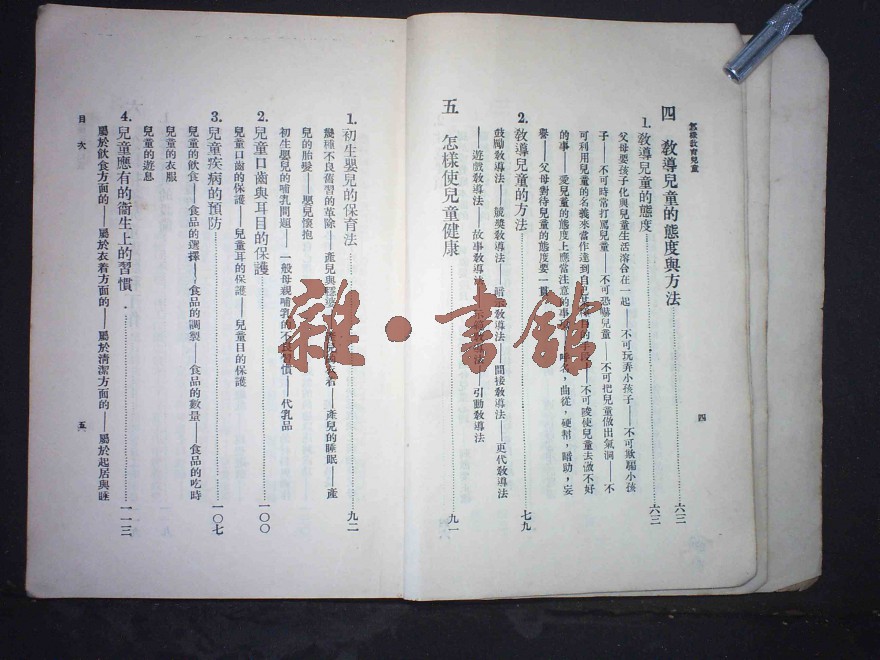 怎樣教育兒童
四
四 教導兒童的態度與方法……六三
1. 教導兒童的態度……六三
父母要孩子化與兒童生活溶合在一起——不可玩弄小孩子——不可欺騙小孩
子——不可時常打罵兒童——不可恐嚇兒童——不可把兒童做出氣洞——不
可利用兒童的名義來當作達到自己目的——不可唆使兒童去做不好
的事——愛兒童的態度上應當注意的事項,曲從,硬幫,暗助,妄
譽——父母對待兒童的態度要一貫
2. 教導兒童的方法……七九
鼓勵教導法——競獎教導法——暗示教導法——間接教導法——更代教導法
——遊戲教導法——故事教導法——教導法——引動教導法
五 怎樣使兒童健康……九一
1. 初生嬰兒的保育法……九二
幾種不良舊習的革除——產兒與——產兒的睡眠——產
兒的胎髮——嬰兒懷抱
初生嬰兒的哺乳問題——一般母親哺乳的不良習慣——代乳品
2. 兒童口齒與耳目的保護……一〇〇
兒童口齒的保護——兒童耳的保護——兒童目的保護
3. 兒童疾病的預防……一〇七
兒童的飲食——食品的選擇——食品的調製——食品的數量——食品的吃時
兒童的衣服
兒童的遊息
4. 兒童應有的衞生上的習慣……一一三
屬於飲食方面的——屬於衣着方面的——屬於清潔方面的——屬於起居與睡
目次
五
雜·書館